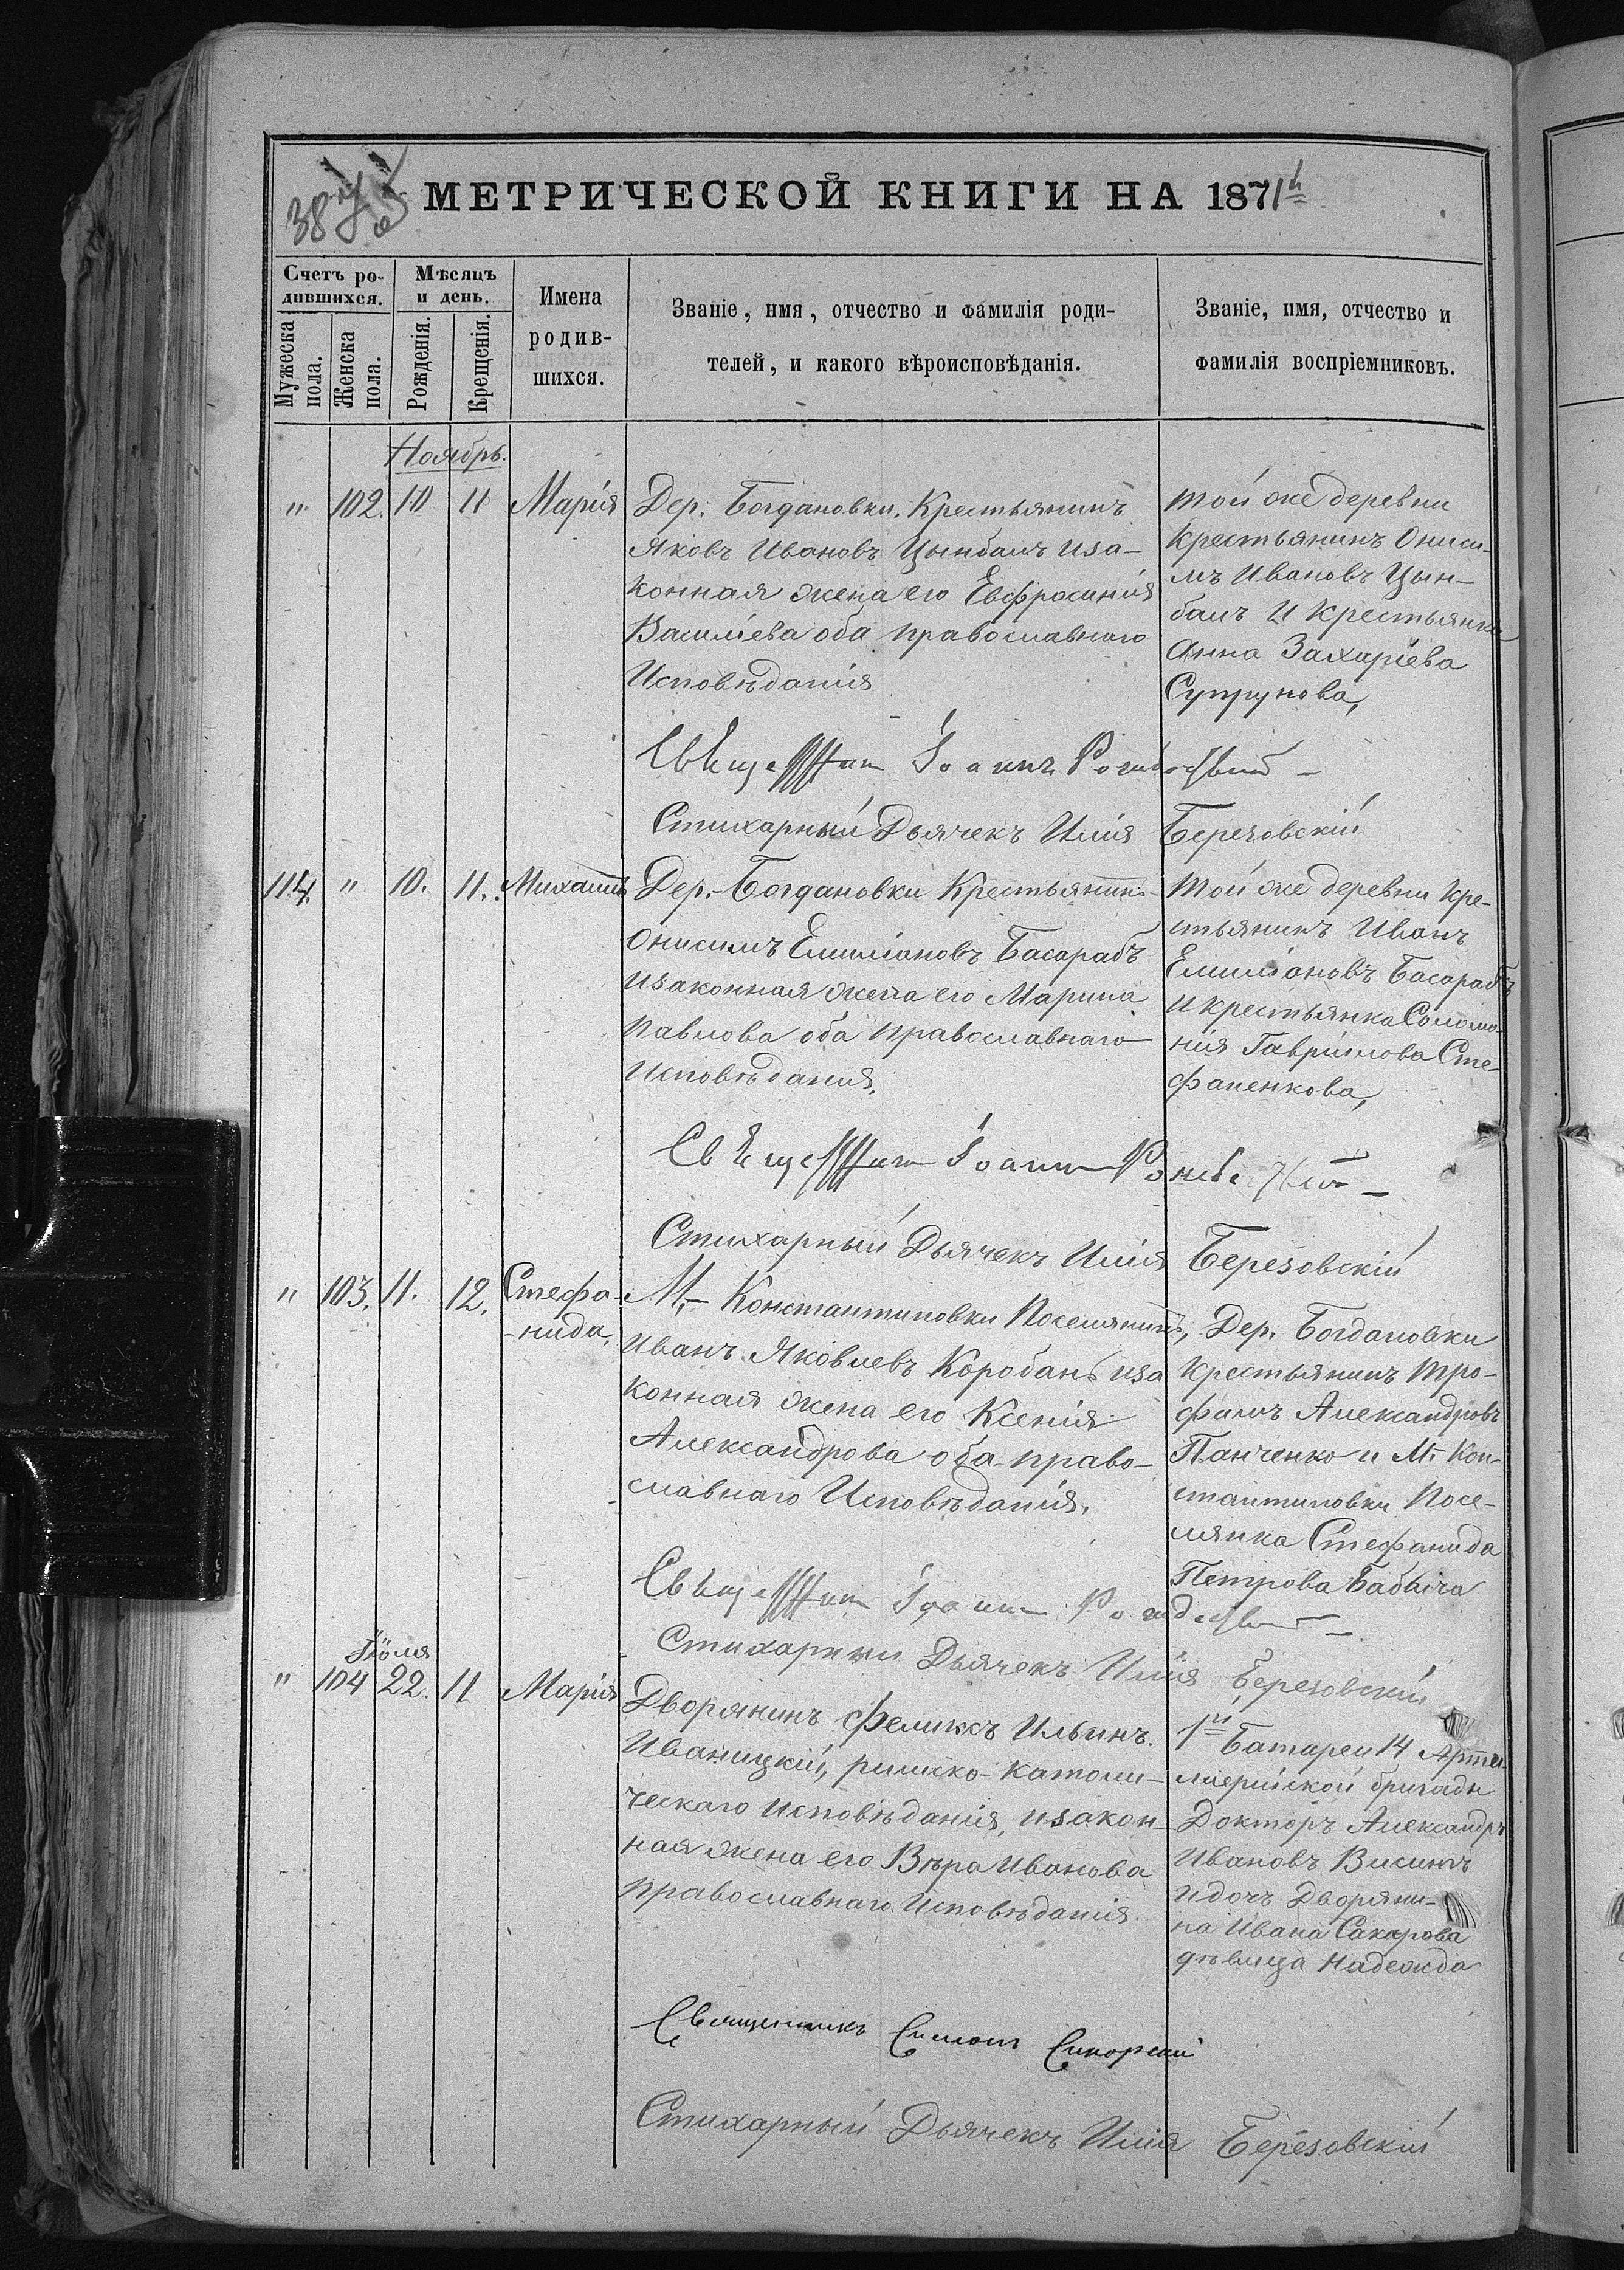 МЕТРИЧЕСКОЙ КНИГИ НА 1871й
Счетъ ро-
дившихся.
Мужеска пола.
Женска пола.
Мѣсяцъ
и день.
Рожденія.
Крещенія.
Имена
родив-
шихся.
Званіе, имя, отчество и фамилія роди-
телей, и какого вѣроисповѣданія.
Званіе, имя, отчество и
фамилія воспріемниковъ.
Ноябрь.
" 102. 10 11 Марія
Дер. Богдановки, Крестьянинъ
Яковъ Ивановъ Цынбалъ иза-
конная жена его Евфросинія
Василіева оба православнаго
Исповѣданія
той же деревни
крестьянинъ Ониси-
мъ Ивановъ Цын-
балъ и крестьянка
Анна Захаріева
Супрунова,
Іоаннъ
Стихарный Дьячекъ Илія Березовскій
114. " 10. 11. Михаилъ
Дер. Богдановки Крестьянинъ
Онисимъ Емиліановъ Басарабъ
изаконная жена его Марина
Павлова оба православнаго
Исповѣданія.
той же деревни кре-
стьянинъ Иванъ
Емиліановъ Басарабъ
и крестьянка Соломо-
нія Гавріилова Сте-
фаненкова,
Іоаннъ
Стихарный Дьячекъ Илія Березовскій
" 103. 11. 12. Стефа-
-нида.
М. Константиновки Поселянинъ,
Иванъ Яковлевъ Коробанъ иза
конная жена его Ксенія
Александрова оба право-
славнаго Исповѣданія.
Дер. Богдановки
крестьянинъ Тро-
фимъ Александровъ
Панченко и М. Кон-
стантиновки Посе-
лянка Стефанида
Петрова Бабыча
Іоаннъ
Стихарный Дьячекъ Илія Березовскій
Іюля
" 104 22. 11 Марія
Дворянинъ Феликсъ Ильинъ.
Иваницкій, римско-католи-
ческаго исповѣданія, изакон-
ная жена его Вѣра Иванова
православнаго Исповѣданія
1й Батареи 14 Арти
лерійской бригады
Докторъ Александръ
Ивановъ
идочь Дворяни-
на Ивана Сахарова
дѣвица Надежда
Священникъ Симонъ Сикорскій
Стихарный Дьячекъ Илія Березовскій